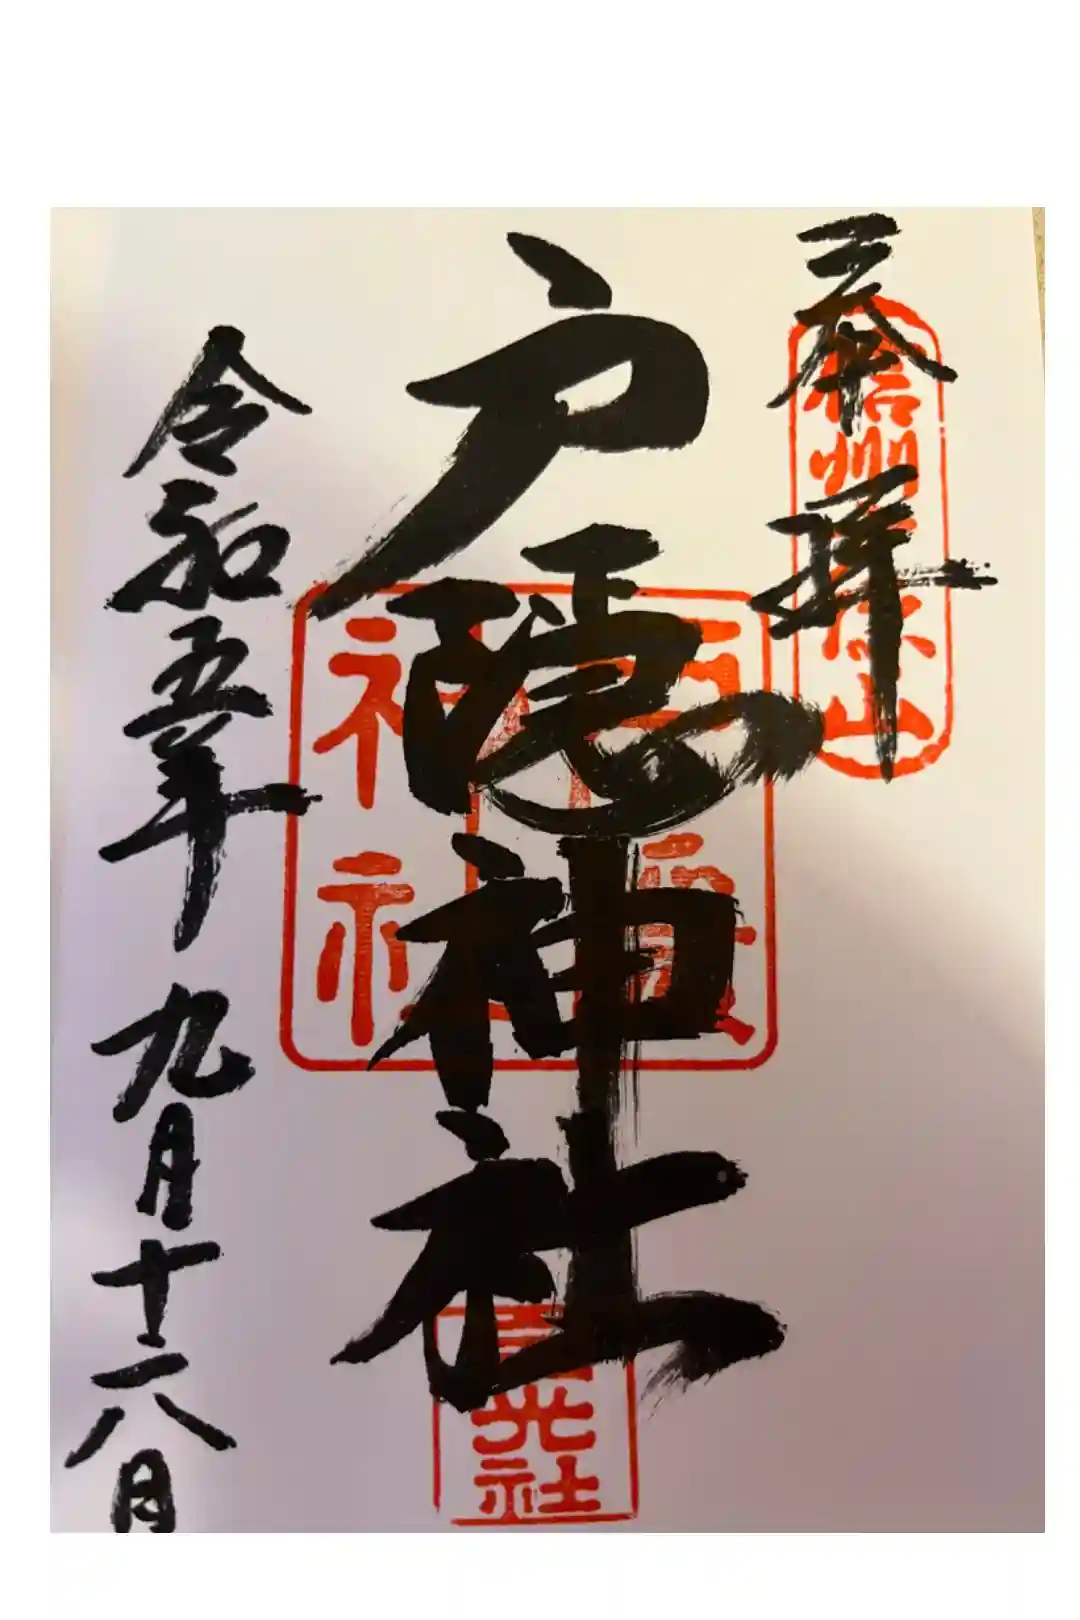 奉拝
信州戸隠山
戸隠神社
戸隠神社
宝光社
令和五年 九月十六日